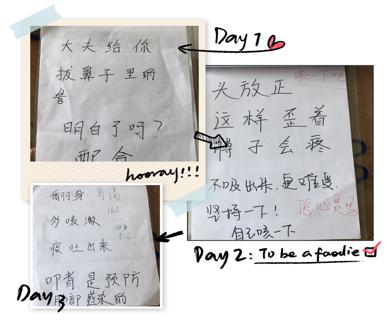 Day 1
大夫给你
拔鼻子里的
管
明白了吗?
配合
hooray!!!
头放正
这样歪着
脖子会疼
不吸出来,更难受,
坚持一下!
自己咳一下
Day 2: To be a foodie
翻身
多咳漱
痰吐出来
叩背是预防
肺部感染的
Day 3